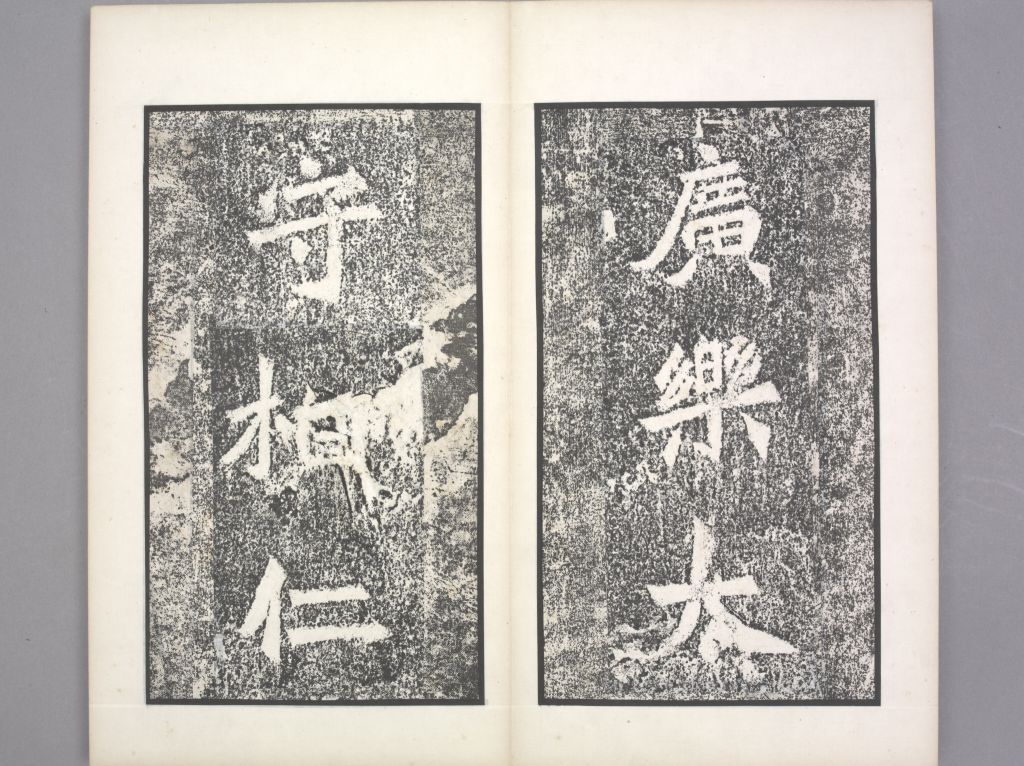 廣樂太
守柏仁